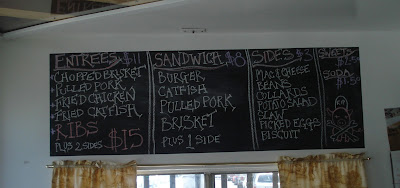 ENTREES $11
CHOPPED BRISKET
PULLED PORK
FRIED CHICKEN
FRIED CATFISH
RIBS $15
PLUS 2 SIDES
SANDWICH $8
BURGER
CATFISH
PULLED PORK
BRISKET
PLUS 1 SIDE
SIDES $3
MAC & CHEESE
BEANS
COLLARDS
POTATO SALAD
SLAW
PICKED EGGS
BISCUIT
SWEETS
SODA